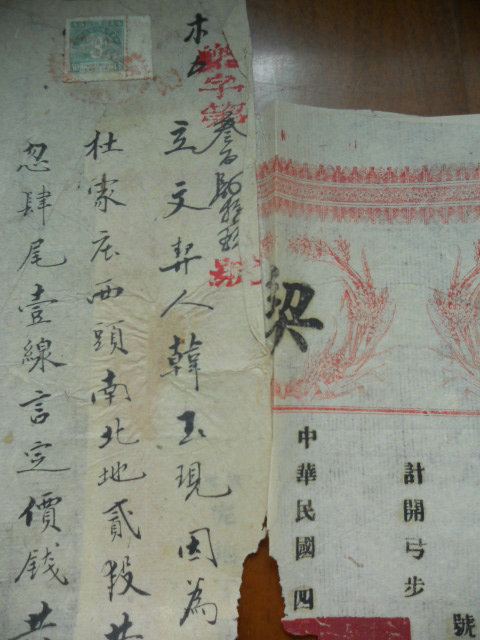 契
計開弓步
號
中華民國四
字第
號
立文契人韓玉現因為
杜家庄西頭南北地貳段共
忽肆尾壹線言定價錢共